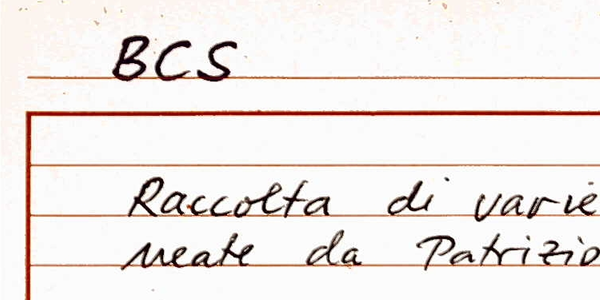 BCS
Raccolta di varie
neate da Patrizio